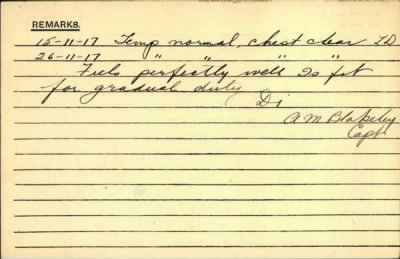 REMARKS.
15-11-17 Temp normal, chest clear LD
26-11-17 " " " "
Feels perfectly well Is fit
for gradual duty
Di
A M Blakeley
Capt